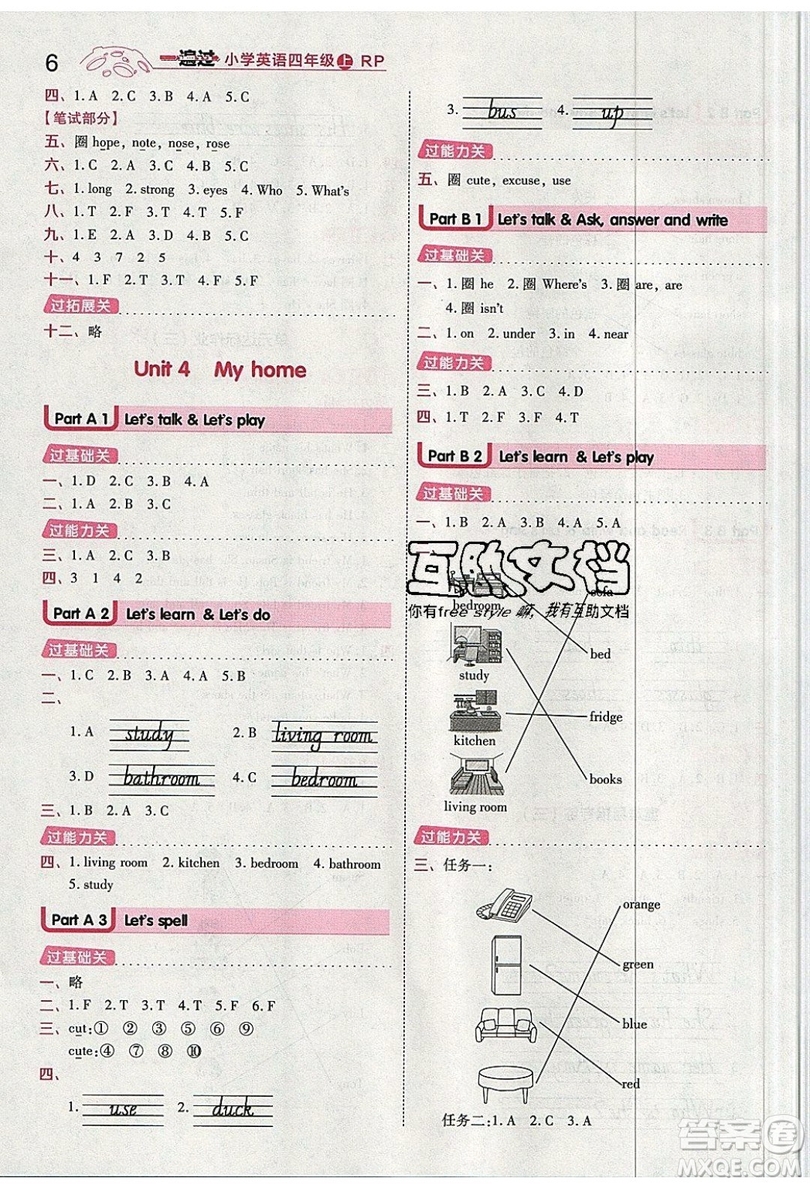 6 一遍过 小学英语四年级上 RP
四、1. A 2. C 3. B 4. A 5. C
【笔试部分】
五、圈 hope, note, nose, rose
六、1. C 2. C 3. B 4. C 5. C
七、1. long 2. strong 3. eyes 4. Who 5. What's
八、1. T 2. F 3. F 4. T 5. F
九、1. E 2. A 3. D 4. B 5. C
十、4 3 7 2 5
十一、1. F 2. F 3. T 4. T 5. F
过拓展关
十二、略
Unit 4 My home
Part A 1 Let's talk & Let's play
过基础关
一、1. D 2. C 3. B 4. A
二、1. A 2. B 3. C
过能力关
三、1. C 2. A 3. B
四、3 1 4 2
Part A 2 Let's learn & Let's do
过基础关
一、1. C 2. B 3. C 4. A 5. B
二、
1. A study 2. B living room
3. D bathroom 4. C bedroom
三、1. B 2. A 3. C
过能力关
四、1. living room 2. kitchen 3. bedroom 4. bathroom
5. study
Part A 3 Let's spell
过基础关
一、略
二、1. F 2. T 3. T 4. T 5. F 6. F
三、cut: ① ② ③ ⑤ ⑨
cute: ④ ⑥ ⑦ ⑧ ⑩
四、
1. use 2. duck
3. bus 4. up
过能力关
五、圈 cute, excuse, use
Part B 1 Let's talk & Ask, answer and write
过基础关
一、1. 圈 he 2. 圈 Where's 3. 圈 are, are
4. 圈 isn't
二、1. on 2. under 3. in 4. near
过能力关
三、1. B 2. A 3. C 4. D
四、1. T 2. F 3. T 4. F
Part B 2 Let's learn & Let's play
过基础关
一、1. B 2. A 3. B 4. A 5. A
互助文档
sofa
bedroom
你有free style嘛，我有互助文档
bed
study
fridge
kitchen
books
living room
过能力关
三、任务一:
orange
green
blue
red
任务二: 1. A 2. C 3. A
答案圈
MXQE.COM